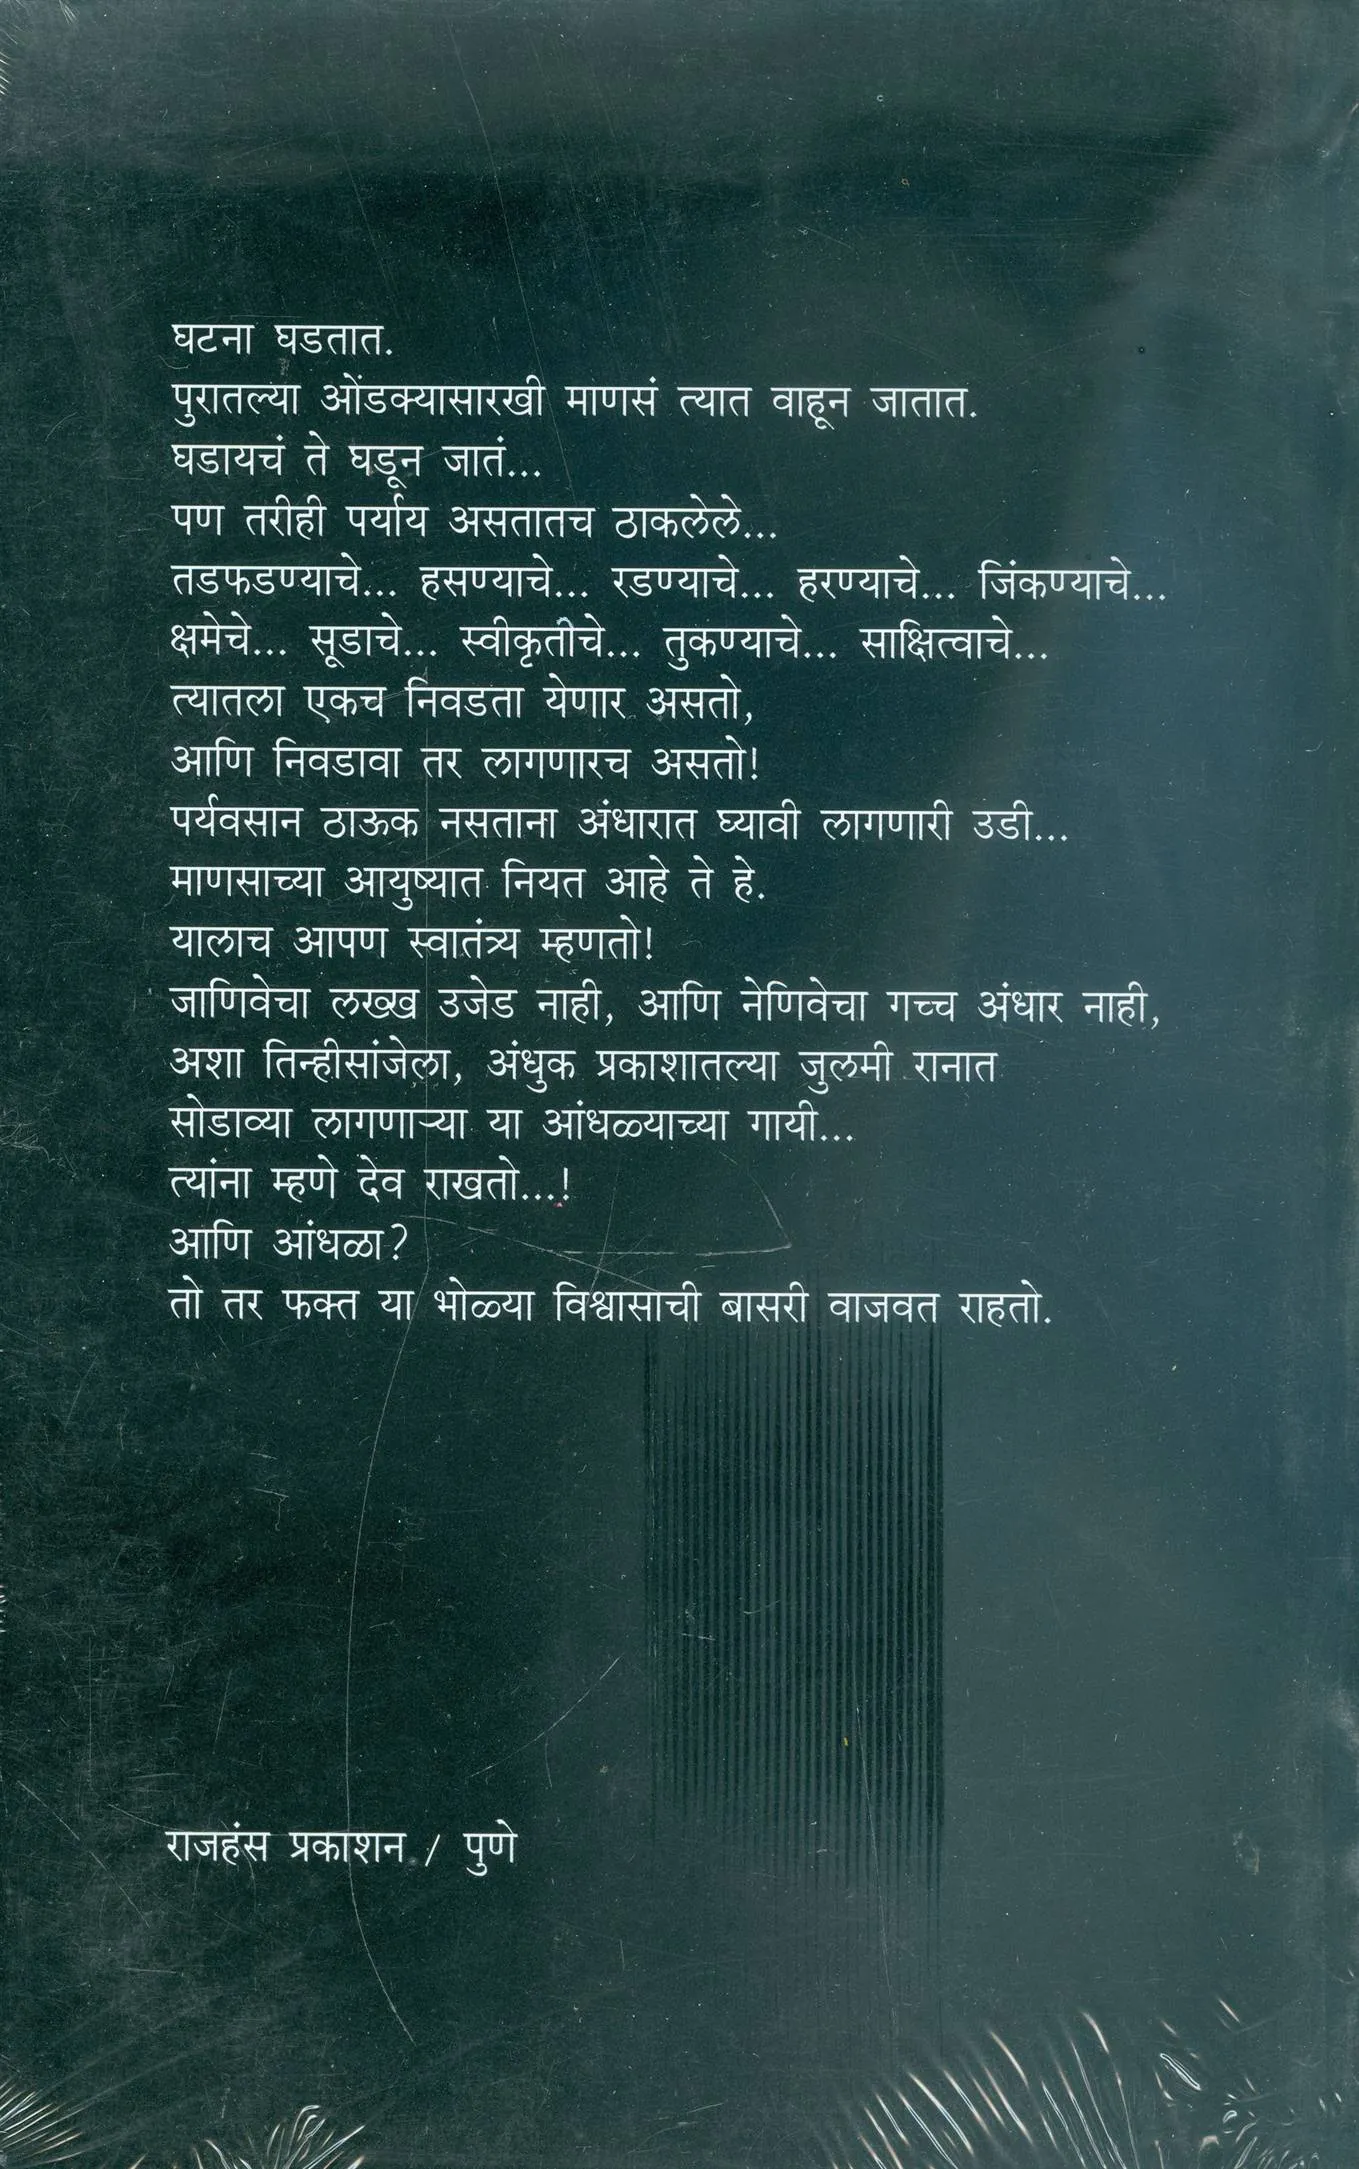 घटना घडतात.
पुरातल्या ओंडक्यासारखी माणसं त्यात वाहून जातात.
घडायचं ते घडून जातं...
पण तरीही पर्याय असतातच ठाकलेले...
तडफडण्याचे... हसण्याचे... रडण्याचे... हरण्याचे... जिंकण्याचे...
क्षमेचे... सूडाचे... स्वीकृतीचे... तुकण्याचे... साक्षित्वाचे...
त्यातला एकच निवडता येणार असतो,
आणि निवडावा तर लागणारच असतो!
पर्यवसान ठाऊक नसताना अंधारात घ्यावी लागणारी उडी...
माणसाच्या आयुष्यात नियत आहे ते हे.
यालाच आपण स्वातंत्र्य म्हणतो!
जाणिवेचा लख्ख उजेड नाही, आणि नेणिवेचा गच्च अंधार नाही,
अशा तिन्हीसांजेला, अंधुक प्रकाशातल्या जुलमी रानात
सोडाव्या लागणाऱ्या या आंधळ्याच्या गायी...
त्यांना म्हणे देव राखतो...!
आणि आंधळा?
तो तर फक्त या भोळ्या विश्वासाची बासरी वाजवत राहतो.
राजहंस प्रकाशन / पुणे